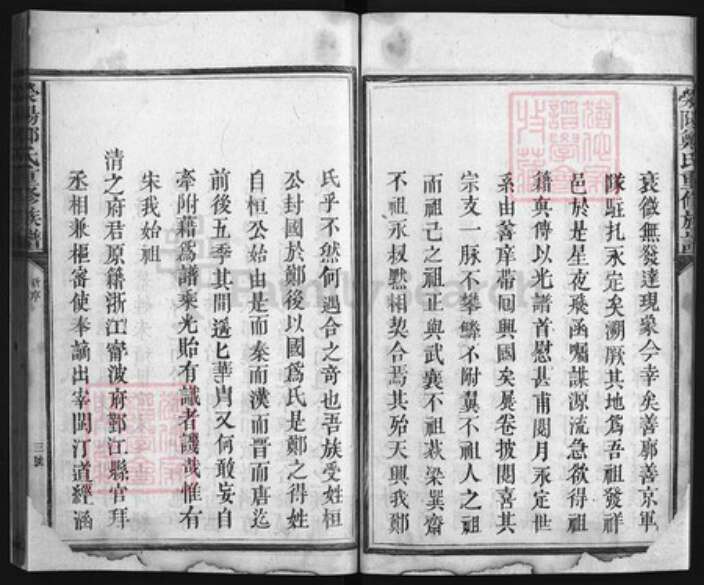 衰徵無發達現象今幸矣善廓善京軍
隊駐扎永定矣溯厥其地爲吾祖發祥
邑於是星夜飛函囑謀源流急欲得祖
籍眞傳以光譜首慰甚甫閱月永定世
系由善庠帶回興國矣展卷披閱喜其
宗支一脉不攀鱗不附翼不祖人之祖
而祖己之祖正與武襄不祖狄梁巽齋
不祖永叔默相契合焉其殆天興我鄭
氏乎不然何遇合之奇也吾族受姓桓
公封國於鄭後以國爲氏是鄭之得姓
自桓公始由是而秦而漢而晋而唐迄
前後五季其間遙遙華胄又何敢妄自
牽附藉爲譜乘光貽有識者譏哉惟有
宋我始祖
清之府君原籍浙江甯波府鄞江縣官拜
丞相兼樞密使奉諭出宰閩汀道經涵
滎陽鄭氏重修族譜
新序
三號
滎陽鄭氏重修族譜
FamilySearch